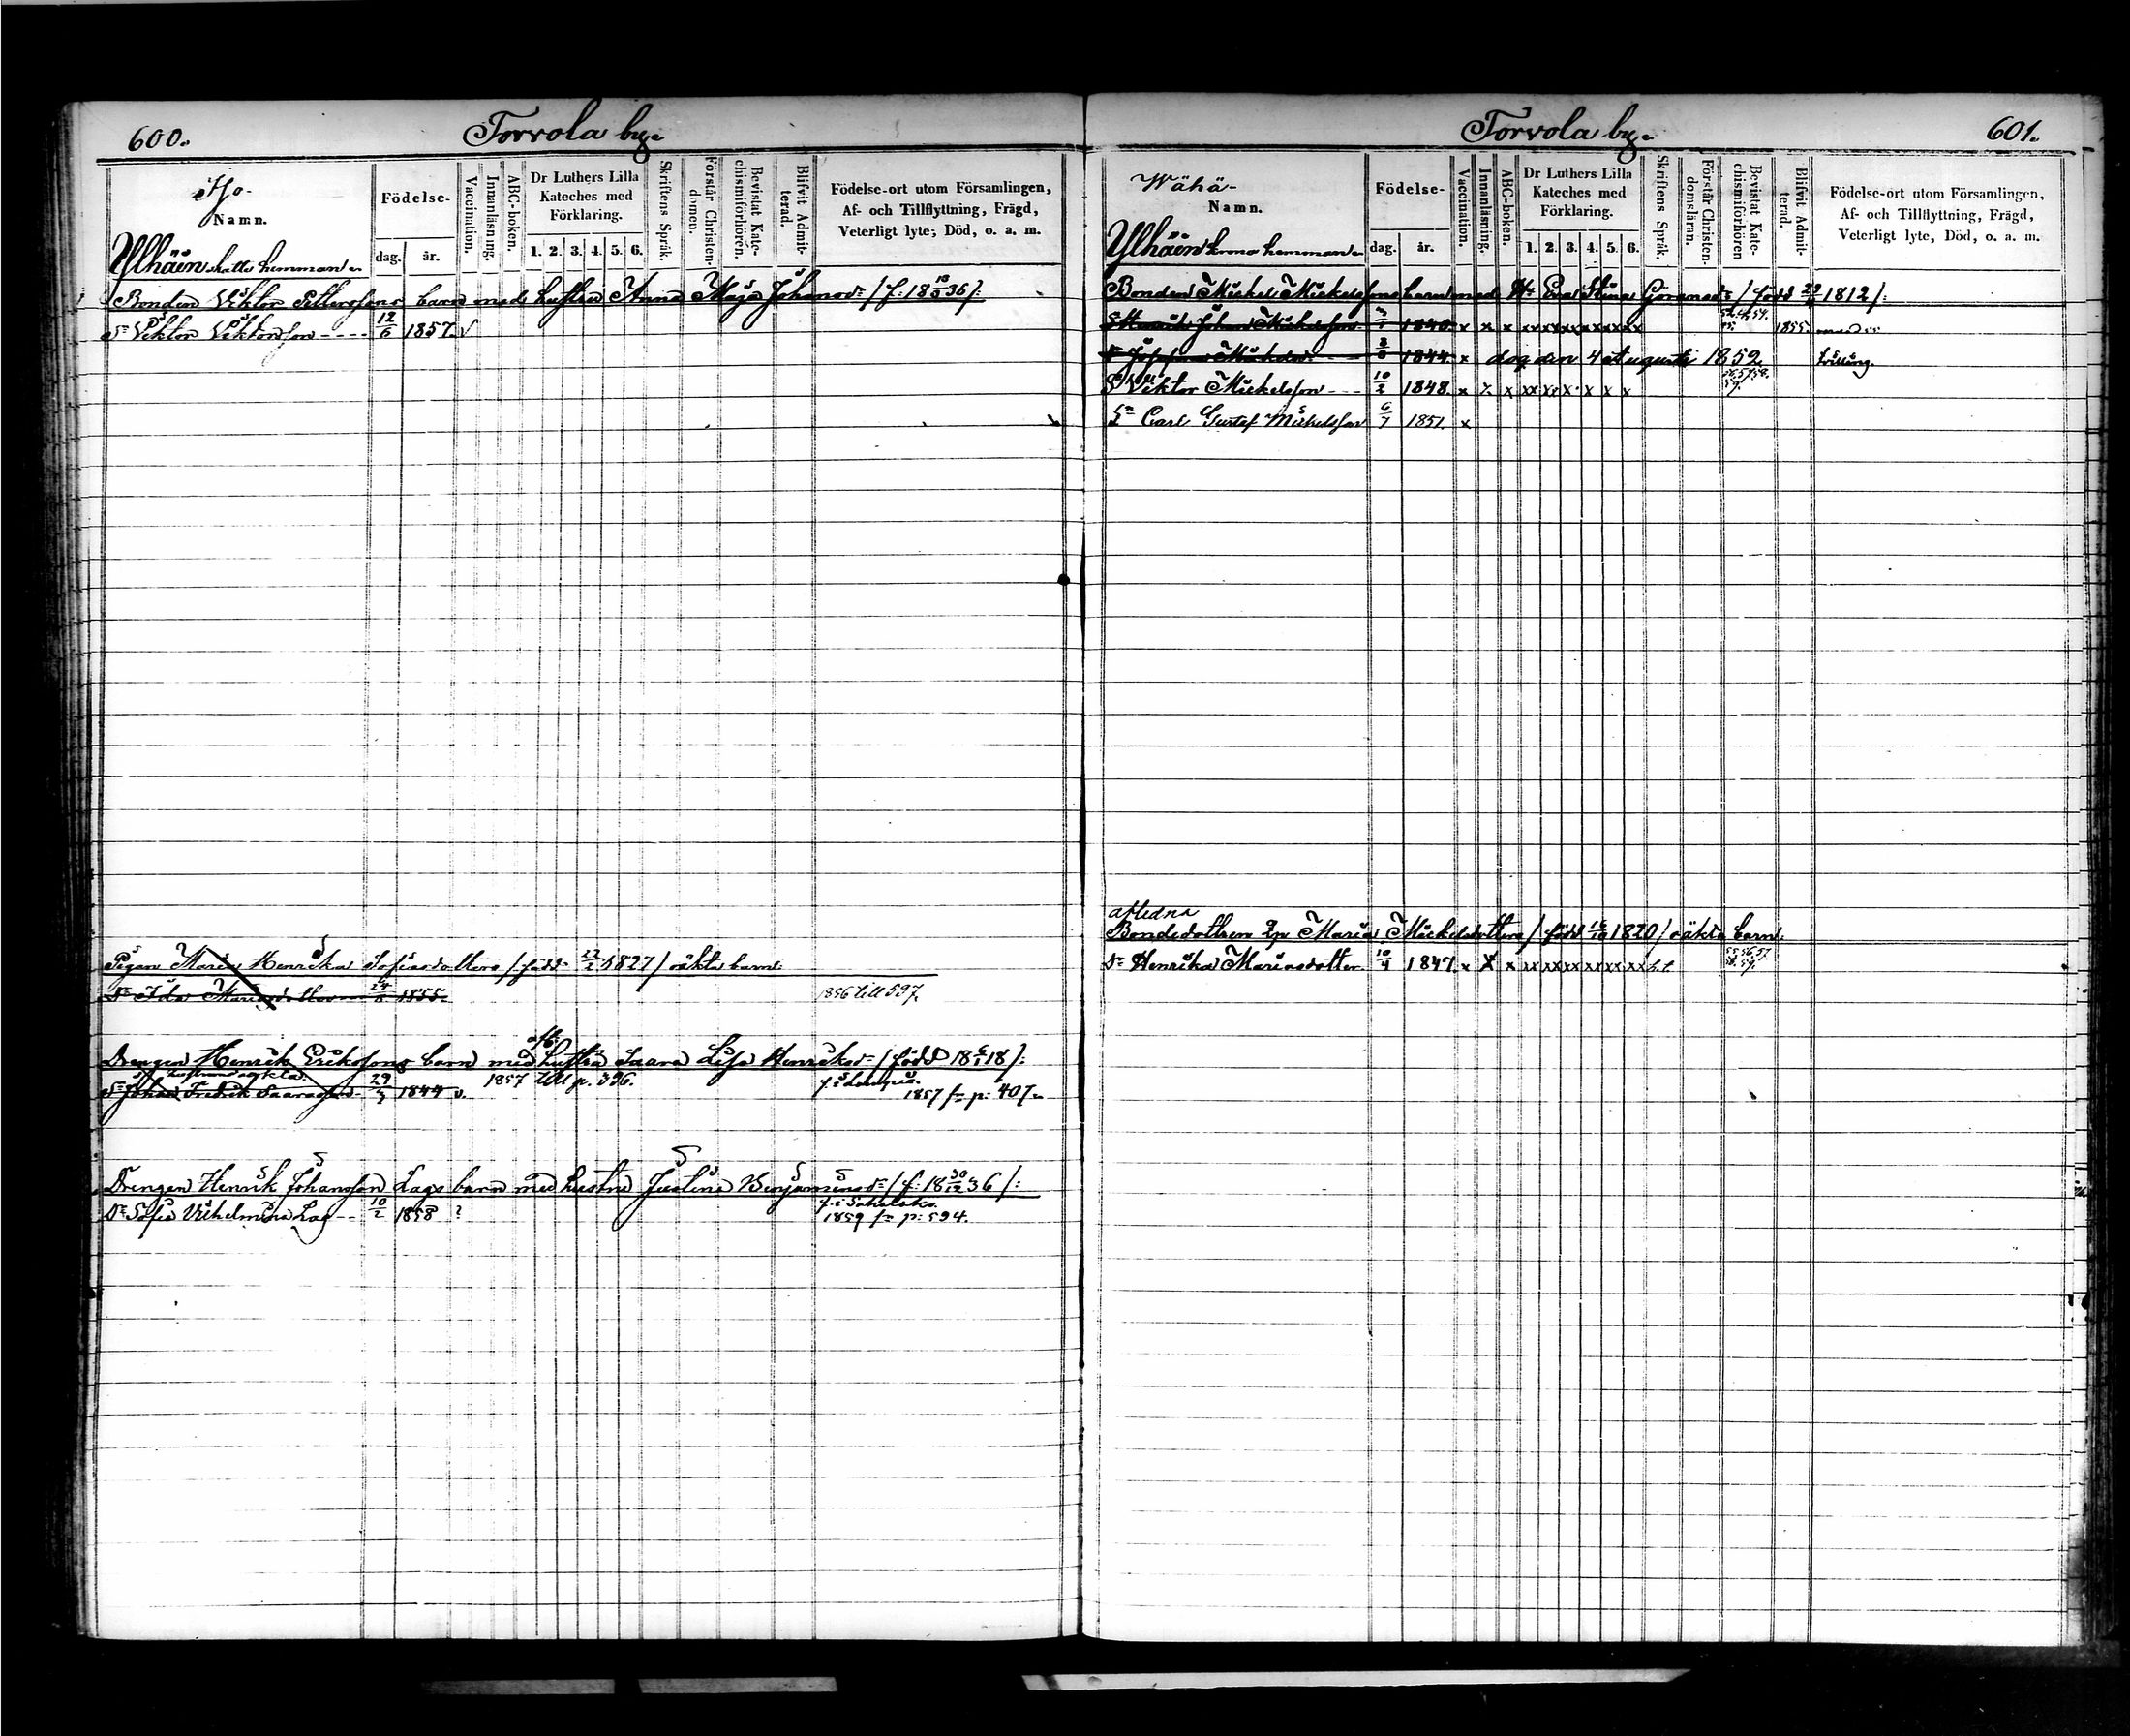 600.
Torvola by.
Iso-
Namn.
Ylhäin skatte hemman
Födelse-
dag.
år.
Vaccination.
Innanläsning.
ABC-boken.
Dr Luthers Lilla
Kateches med
Förklaring.
1. 2. 3. 4. 5. 6.
Skriftens Språk.
Förstår Christen-
domen.
Bevistat Kate-
chismiförhören.
Blifvit Admit-
terad.
Födelse-ort utom Församlingen,
Af- och Tillflyttning, Frägd,
Veterligt lyte, Död, o. a. m.
Bonden Viktor Pettersons barn med hustru Anna Maja Johansdr /f. 18 36/:
Sn Viktor Viktorsson 12/6 1857. v
Pigan Maria Henrika Sofiasdotters /född 1827/ oäkta barn
Dr Ida Mariasdotter 1855. 1856 till 597.
afl:
Drengen Henrik Eriksons barn med hustru Saara Lisa Henriksdr /född 18 6/1 18/:
hustruns oäkta. 1857 till p. 396.
Sn Johan Fredrik Saarasson 29/3 1844 v. 1857 fr p: 407.
Drengen Henrik Johansson Lags barn med hustru Justina Benjaminsdr /f. 18 30/12 36/:
Dr Sofia Vilhelmina Lag 10/2 1858 ?
1859 fr p: 594.
Torvola by.
601.
Wähä-
Namn.
Ylhäin krono hemman
Födelse-
dag.
år.
Vaccination.
Innanläsning.
ABC-boken.
Dr Luthers Lilla
Kateches med
Förklaring.
1. 2. 3. 4. 5. 6.
Skriftens Språk.
Förstår Christen-
domsläran.
Bevistat Kate-
chismiförhören
Blifvit Admit-
terad.
Födelse-ort utom Församlingen,
Af- och Tillflyttning, Frägd,
Veterligt lyte, Död, o. a. m.
Bonden Mickel Mickelssons barn med H. Eva Stina Göransdr /född 1812/:
S Henrik Johan Mickelsson 1840 x x x xx xx xx xx xx xx 1855.
Dr Josefina Mickelsdr 1844 x dog den 4 Augusti 1852 tvilling.
S Viktor Mickelsson 10/2 1848. x x x xx xx x x x x
Sn Carl Gustaf Mickelsson 6/7 1851. x
afledna
Bondedottren Maria Mickelsdotters /född 1820/ oäkta barn.
Dr Henrika Mariasdotter 10/4 1847. x x x xx xx xx xx xx xx